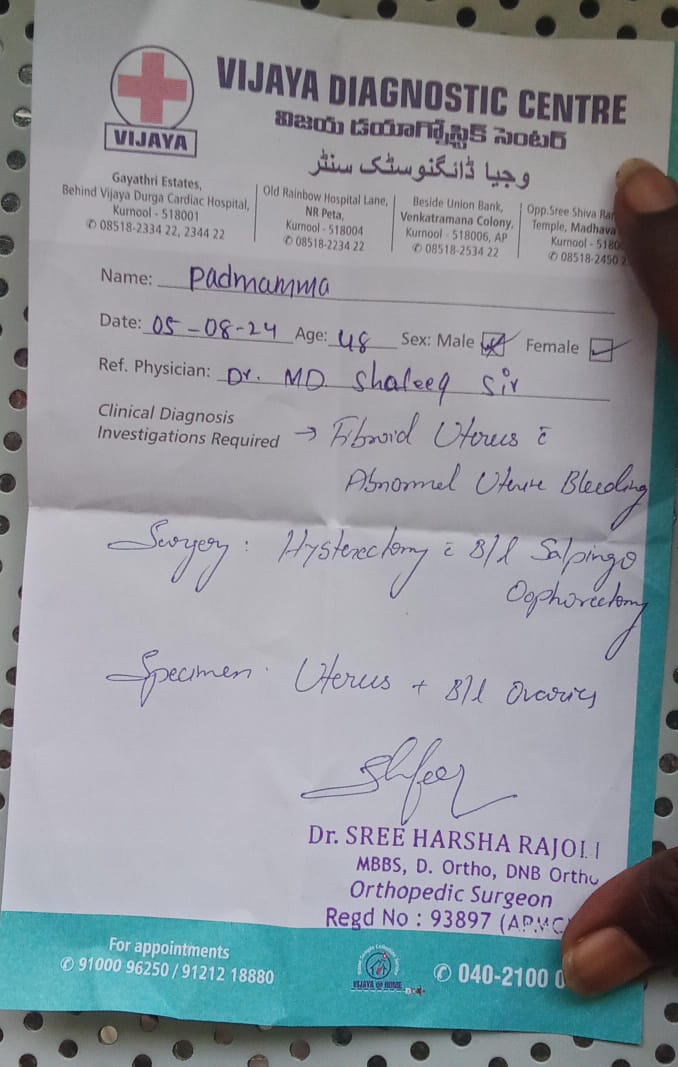 VIJAYA
VIJAYA DIAGNOSTIC CENTRE
విజయ డయాగ్నోస్టిక్ సెంటర్
وجیا ڈائگنوسٹک سنٹر
Gayathri Estates,
Behind Vijaya Durga Cardiac Hospital,
Kurnool - 518001
✆ 08518-2334 22, 2344 22
Old Rainbow Hospital Lane,
NR Peta,
Kurnool - 518004
✆ 08518-2234 22
Beside Union Bank,
Venkatramana Colony,
Kurnool - 518006, AP
✆ 08518-2534 22
Opp.Sree Shiva
Temple, Madhava
Kurnool - 5180
✆ 08518-2450 2
Name: Padmamma
Date: 05-08-24 Age: 48 Sex: Male Female
Ref. Physician: Dr. MD. Shaleeq Sir
Clinical Diagnosis
Investigations Required → Fibroid Uterus c̄
Abnormel Uterine Bleeding
Surgery: Hysterectomy c̄ B/l Salpingo
Oophorectomy
Specimen: Uterus + B/l Ovaries
Dr. SREE HARSHA RAJOLI
MBBS, D. Ortho, DNB Ortho
Orthopedic Surgeon
Regd No : 93897 (APMC)
For appointments
✆ 91000 96250 / 91212 18880
VIJAYA @ HOME
✆ 040-2100 0